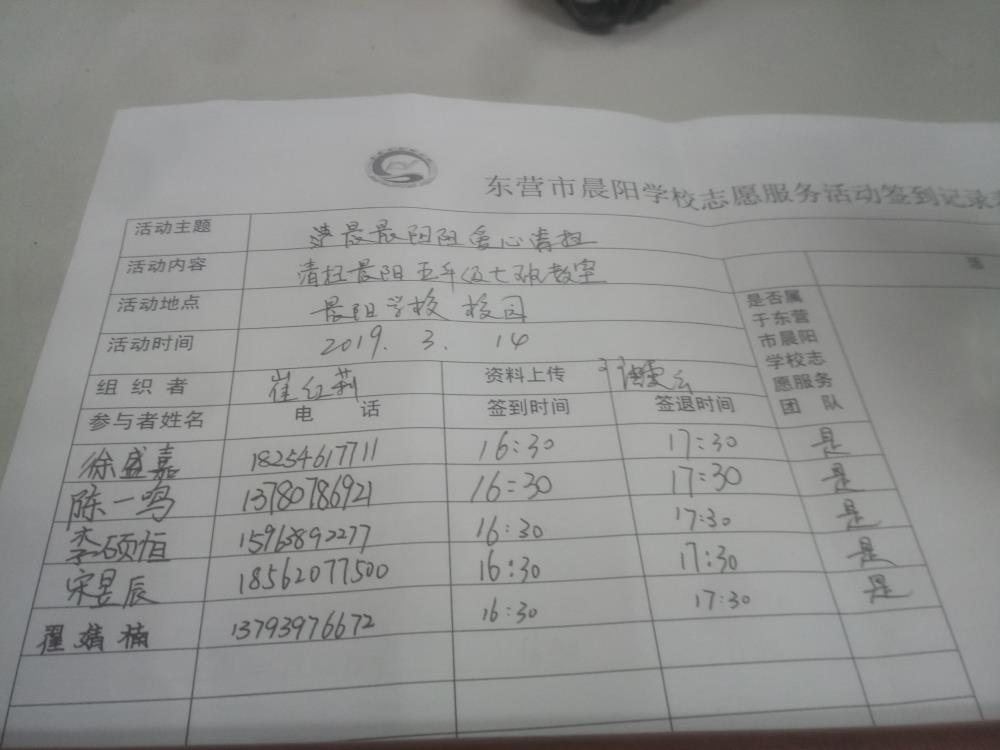 东营市晨阳学校志愿服务活动签到记录
活动主题 清晨晨阳阳爱心清扫
活动内容 清扫晨阳五年级七班教室
活动地点 晨阳学校 校园
活动时间 2019. 3. 14
组织者 崔红莉 资料上传
是否属于东营市晨阳学校志愿服务团队
活
参与者姓名 电话 签到时间 签退时间
徐盛嘉 18254617711 16:30 17:30 是
陈一鸣 13780786921 16:30 17:30 是
李硕恒 15963892277 16:30 17:30 是
宋昱辰 18562077500 16:30 17:30 是
翟婧楠 13793976672 16:30 17:30 是